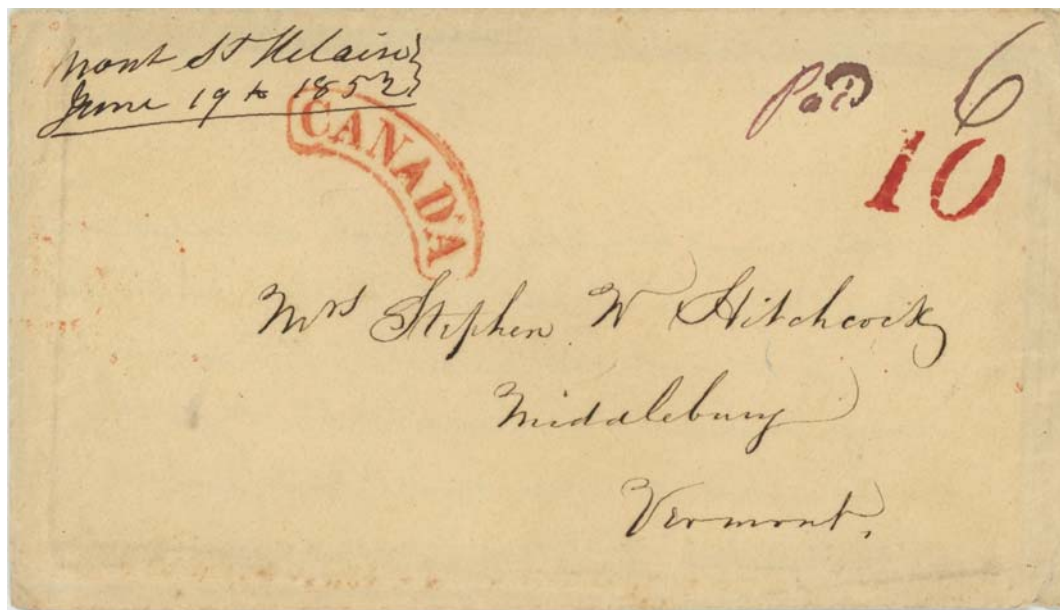 Mont St Hilaire
June 19th 1852
Paid 6
CANADA
10
Mrs Stephen W Hitchcock
Middlebury
Vermont.